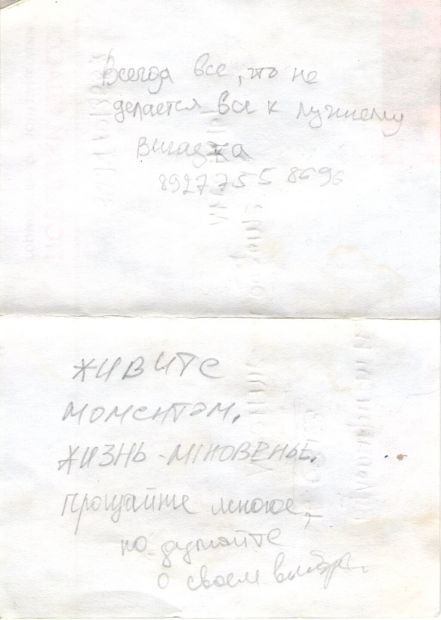 Всегда все, что не
делается все к лучшему
8927755 8696
ЖИВИТЕ
МОМЕНТОМ.
ЖИЗНЬ - МГНОВЕНЬЕ.
Прощайте многое,
но думайте
о своем выборе.